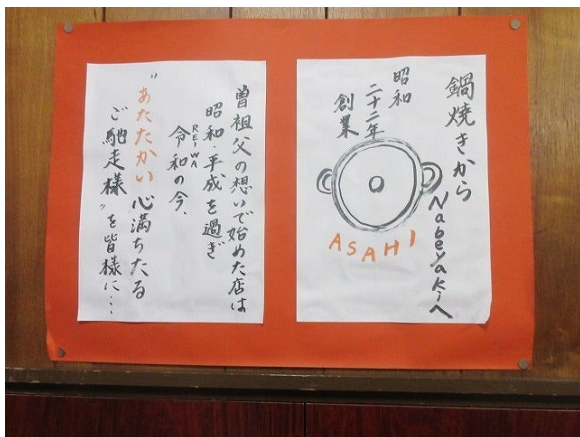 鍋焼きから
Nabeyakiへ
昭和
二十二年
創業
ASAHI
曽祖父の想いで始めた店は
昭和・平成を過ぎ
令和の今、
REIWA
"あたたかい心満ちたる
ご馳走様"を皆様に…